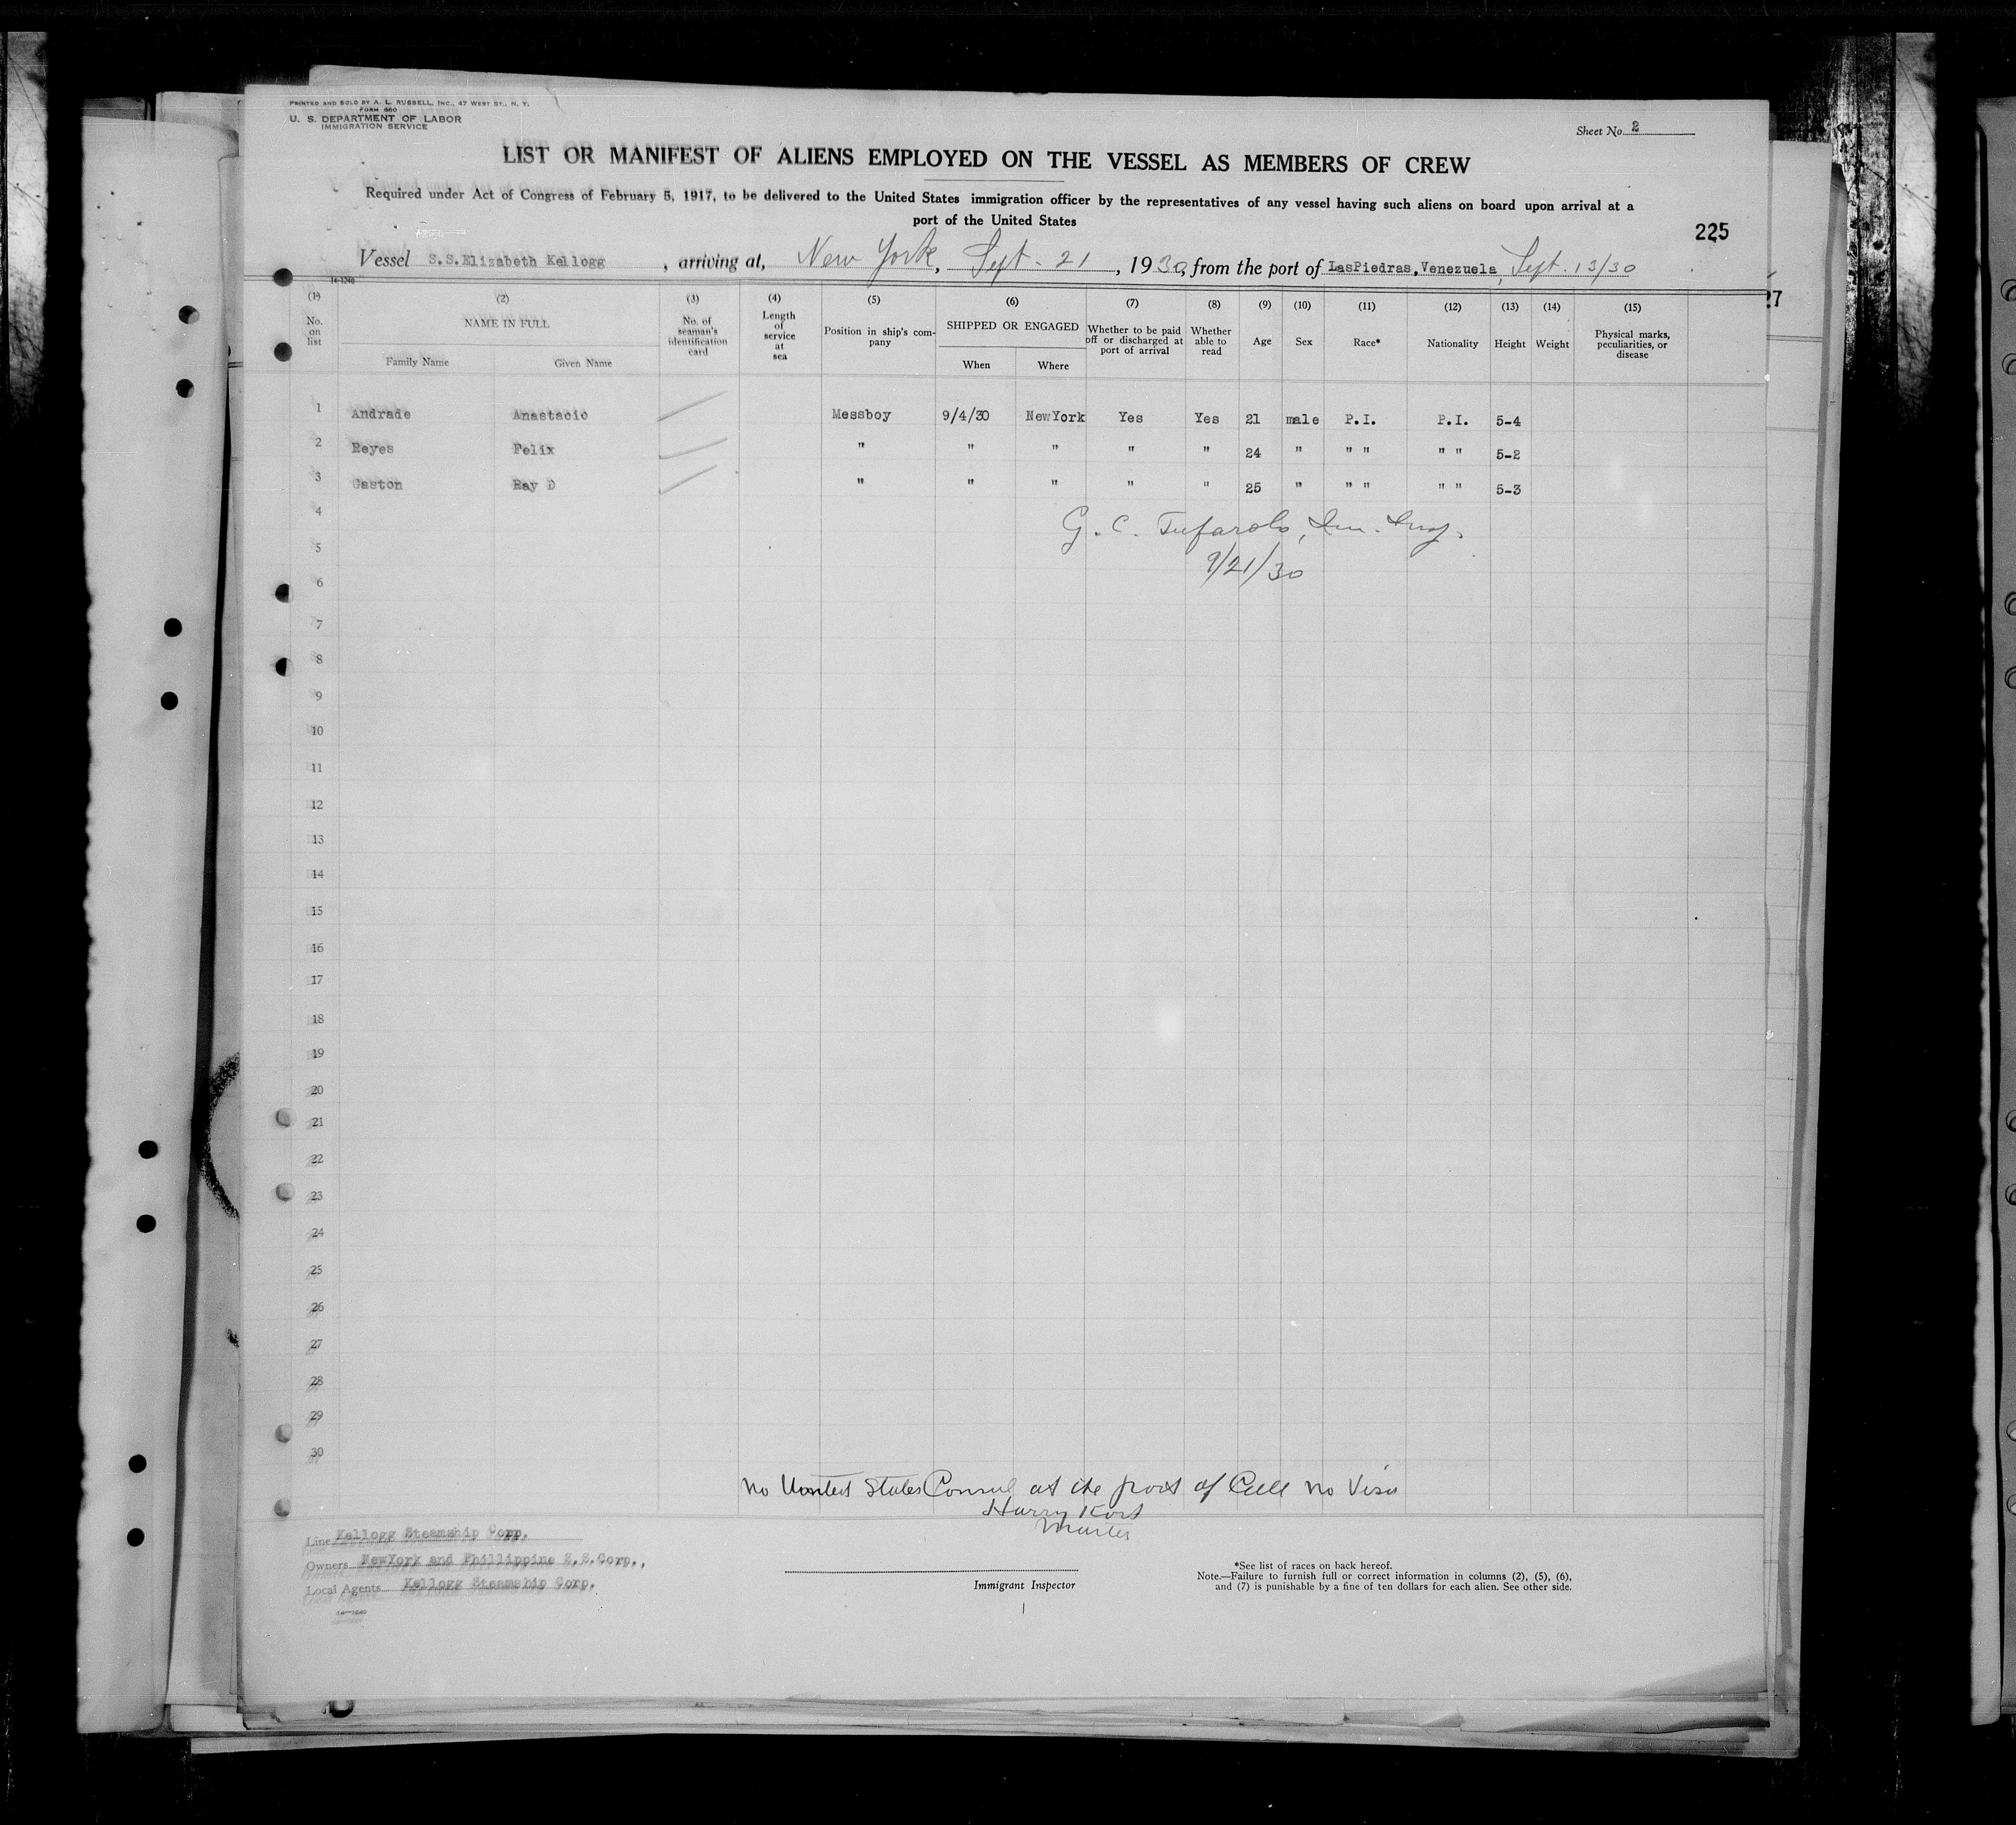 PRINTED AND SOLD BY A. L. RUSSELL, INC., 47 WEST ST., N. Y.
FORM 660
U. S. DEPARTMENT OF LABOR
IMMIGRATION SERVICE
Sheet No. 2
LIST OR MANIFEST OF ALIENS EMPLOYED ON THE VESSEL AS MEMBERS OF CREW
Required under Act of Congress of February 5, 1917, to be delivered to the United States immigration officer by the representatives of any vessel having such aliens on board upon arrival at a
port of the United States
225
Vessel S.S.Elizabeth Kellogg, arriving at, New York, Sept. 21, 1930, from the port of LasPiedras, Venezuela, Sept. 13/30
14-1240
27
(1) (2) (3) (4) (5) (6) (7) (8) (9) (10) (11) (12) (13) (14) (15)
No. on list NAME IN FULL No. of seaman's identification card Length of service at sea Position in ship's company SHIPPED OR ENGAGED Whether to be paid off or discharged at port of arrival Whether able to read Age Sex Race* Nationality Height Weight Physical marks, peculiarities, or disease
Family Name Given Name When Where
1 Andrade Anastacio Messboy 9/4/30 NewYork Yes Yes 21 male P.I. P.I. 5-4
2 Reyes Felix " " " " " 24 " " " " " 5-2
3 Gaston Ray D " " " " " 25 " " " " " 5-3
4
G. C. Tufarolo, Im. Insp.
5
9/21/30
6
7
8
9
10
11
12
13
14
15
16
17
18
19
20
21
22
23
24
25
26
27
28
29
30
No United States Consul at the port of Call no Visa
Harry Kort
Master
Line Kellogg Steamship Corp.
Owners NewYork and Phillippine S.S.Corp.,
Local Agents Kellogg Steamship Corp.
14-1240
Immigrant Inspector
*See list of races on back hereof.
Note.—Failure to furnish full or correct information in columns (2), (5), (6),
and (7) is punishable by a fine of ten dollars for each alien. See other side.